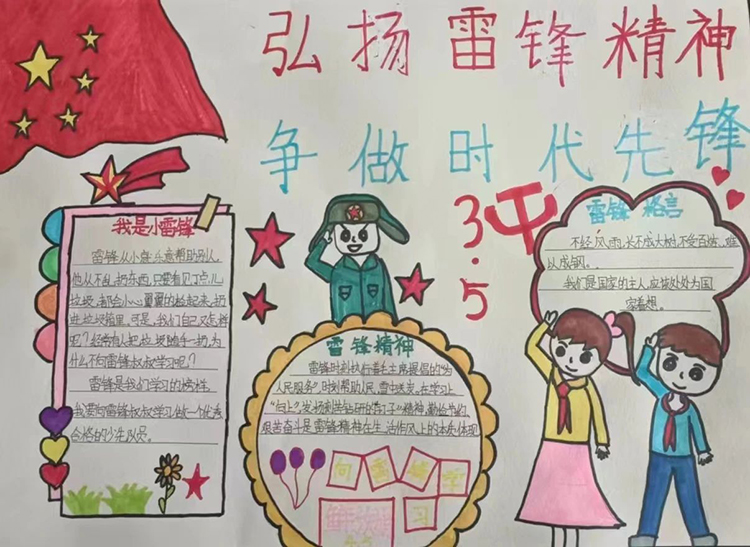 弘扬雷锋精神
争做时代先锋
3.5
我是小雷锋
雷锋从小就乐意帮助别人,
他从不乱扔东西,只要看见了点儿
垃圾,都会小心翼翼的捡起来,扔
进垃圾箱里,可是,我们自己又怎样
呢?经常有人把垃圾随手一扔,为
什么不向雷锋叔叔学习呢?
雷锋是我们学习的榜样,
我要向雷锋叔叔学习做一个优秀
合格的少先队员。
雷锋精神
雷锋时刻执行着毛主席提倡的“为
人民服务”,时刻帮助人民,雪中送炭。在学习上
“向上”,发扬刻苦钻研的“钉子”精神,勤俭节约,
艰苦奋斗是雷锋精神在生活作风上的本质体现
向雷锋学
习
雷锋格言
不经风雨,长不成大树,不受百炼,难
以成钢。
我们是国家的主人,应该处处为国
家着想。